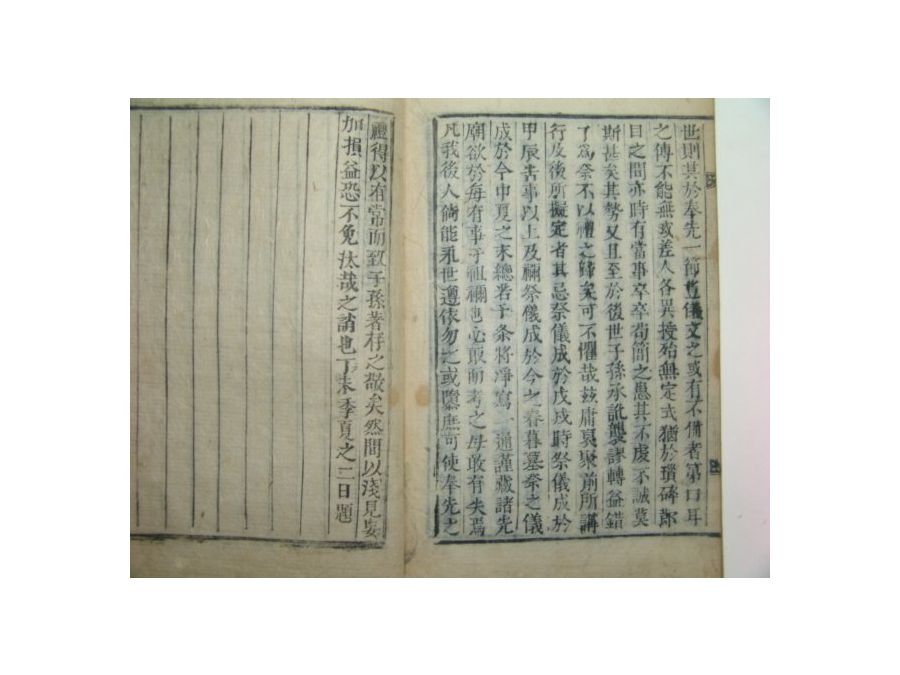 世則其於奉先一節豈儀文之或有不備者第口耳
之傳不能無或差人各異授殆無定式猶於瑣碎節
目之間亦時有當事卒卒苟簡之愚其不虔不誠莫
斯甚矣其勢又且至於後世子孫承訛襲謬轉益錯
了爲祭不以禮之歸矣可不懼哉玆庸裒聚前所講
行及後所擬定者其忌祭儀成於戊戌時祭儀成於
甲辰苦事以上及禰祭儀成於今之春暮墓祭之儀
成於今中夏之末總若干条將凈寫一通謹藏諸先
廟欲於每有事于祖禰也必取而考之毋敢有失焉
凡我後人倘能永世遵依勿之或隳庶可使奉先之
禮得以有常而致子孫著存之敬矣然間以淺見妄
加損益恐不免汰哉之誚也丁未季夏之二日題